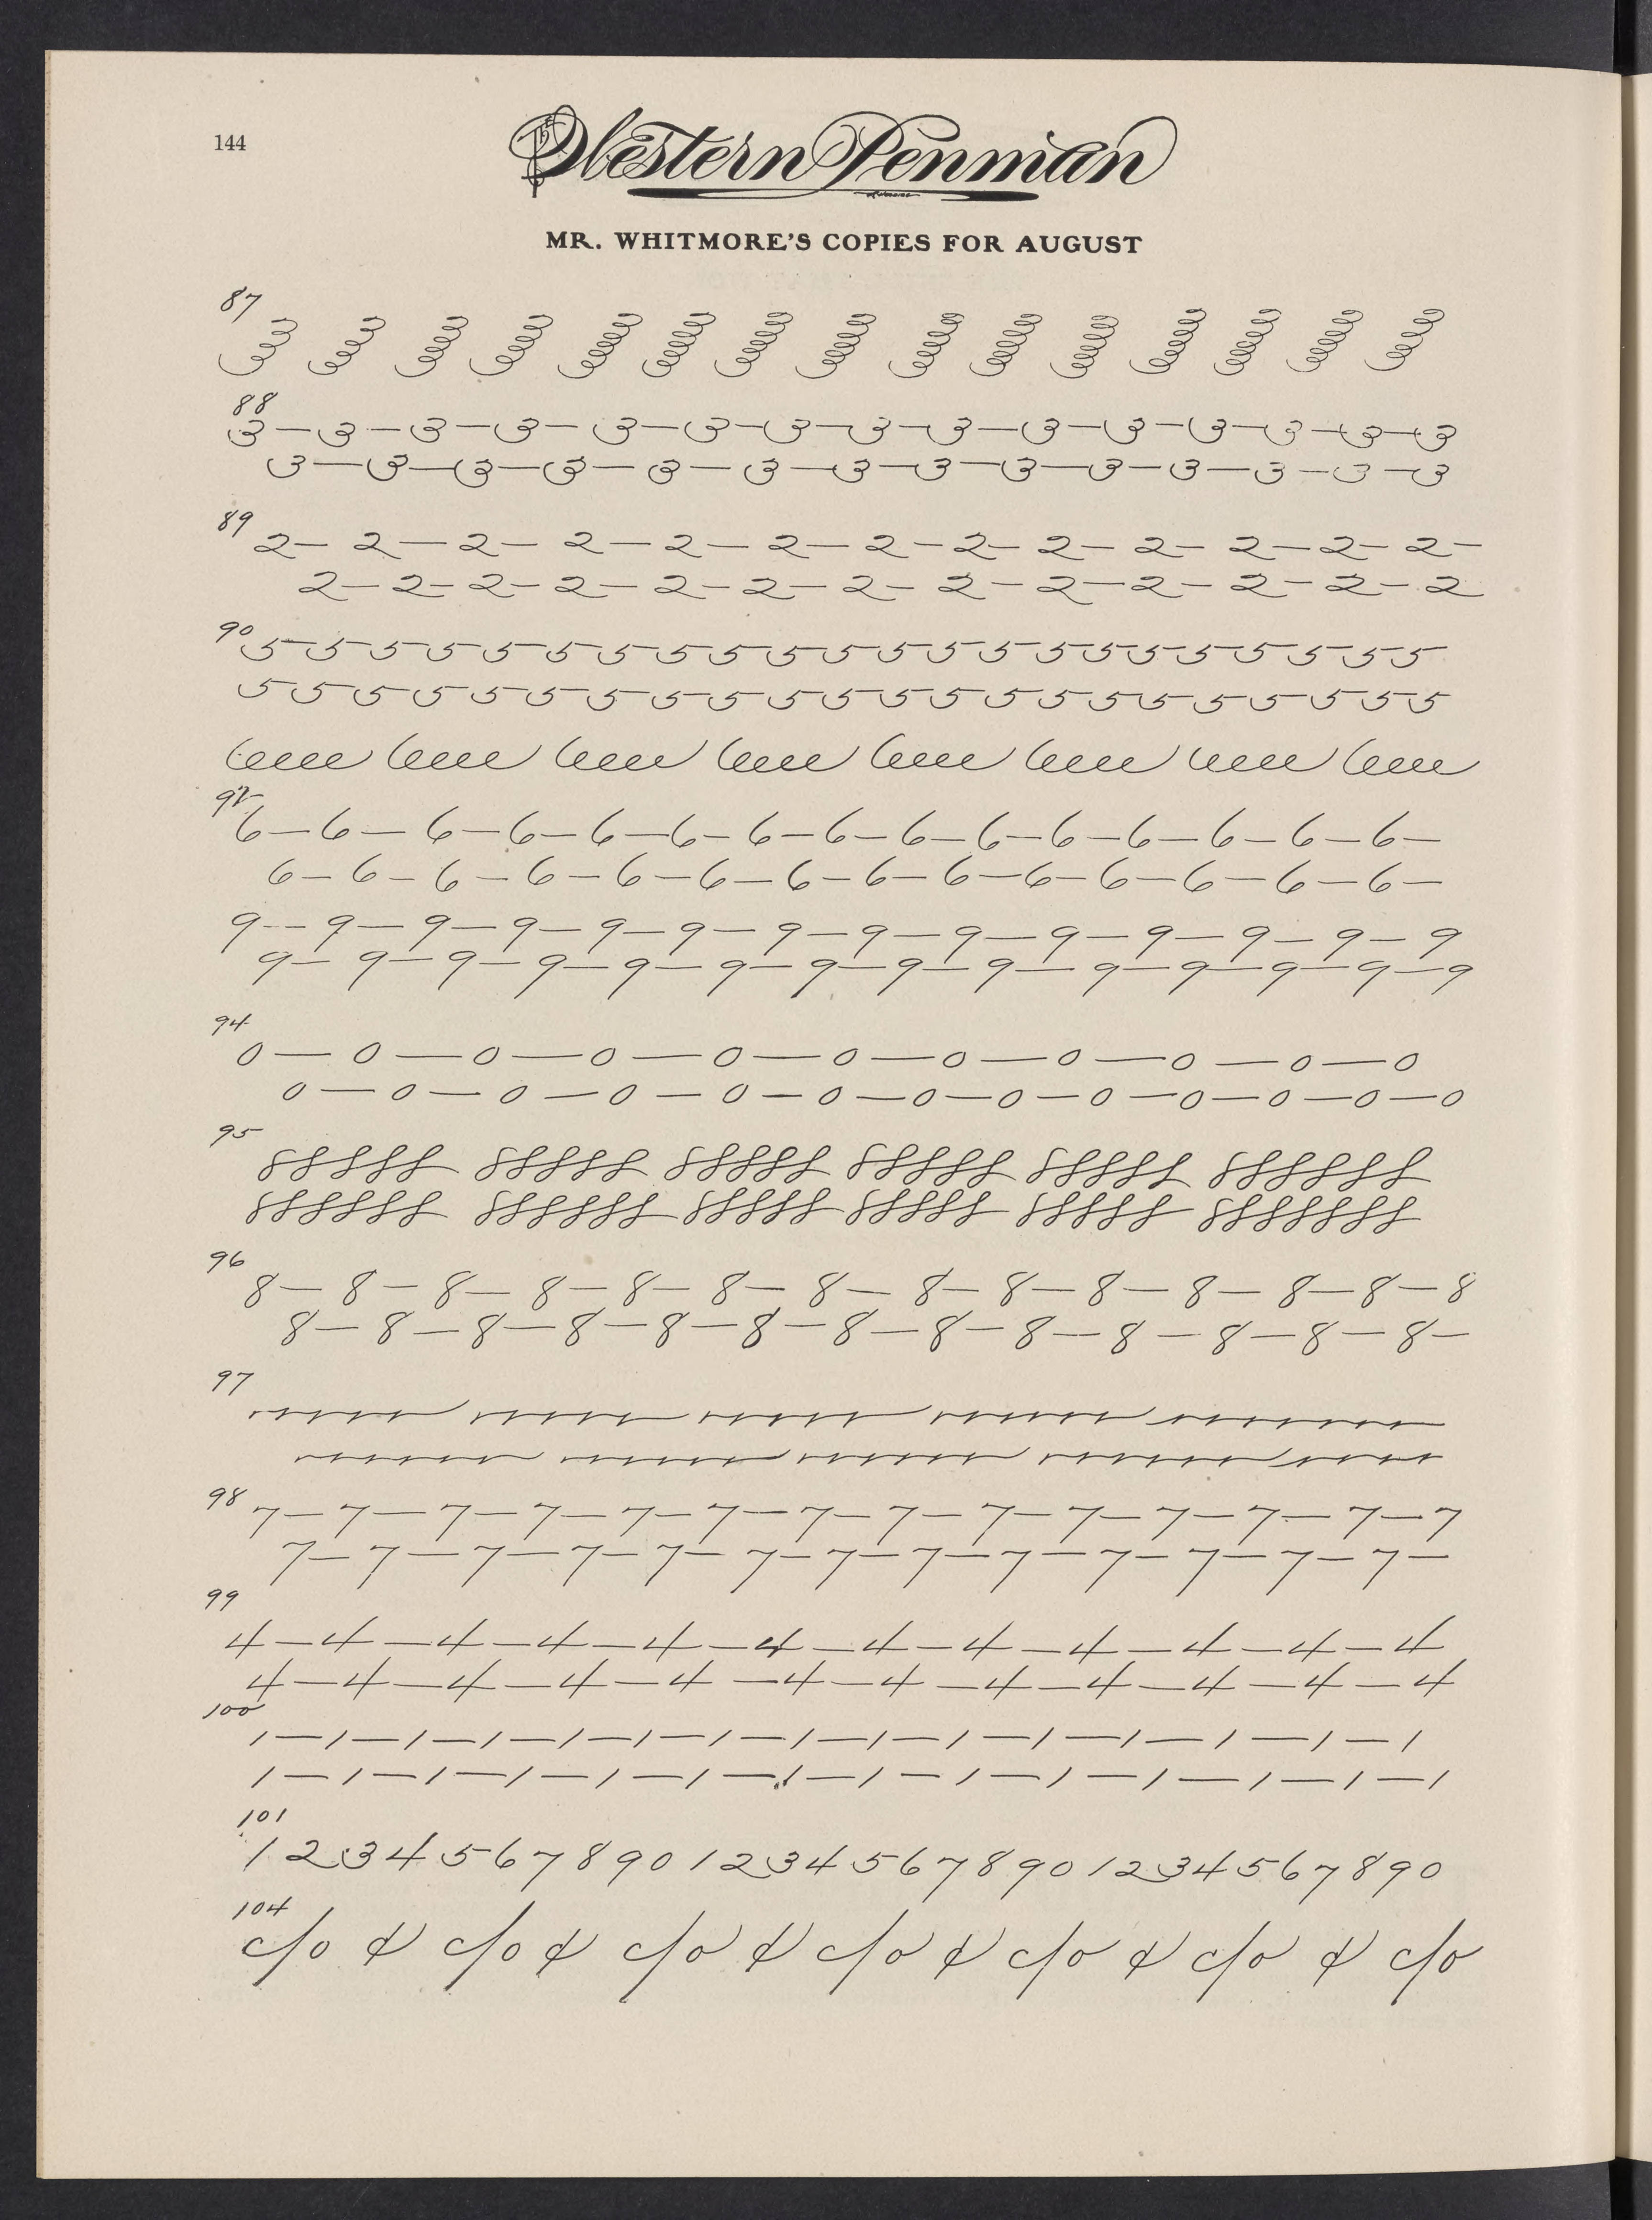 144
The Western Penman
MR. WHITMORE'S COPIES FOR AUGUST
87
88
3 — 3 — 3 — 3 — 3 — 3 — 3 — 3 — 3 — 3 — 3 — 3 — 3 — 3 — 3
3 — 3 — 3 — 3 — 3 — 3 — 3 — 3 — 3 — 3 — 3 — 3 — 3 — 3
89
2 — 2 — 2 — 2 — 2 — 2 — 2 — 2 — 2 — 2 — 2 — 2 — 2 —
2 — 2 — 2 — 2 — 2 — 2 — 2 — 2 — 2 — 2 — 2 — 2 — 2
90
5 5 5 5 5 5 5 5 5 5 5 5 5 5 5 5 5 5 5 5 5 5
5 5 5 5 5 5 5 5 5 5 5 5 5 5 5 5 5 5 5 5 5 5
92
6 — 6 — 6 — 6 — 6 — 6 — 6 — 6 — 6 — 6 — 6 — 6 — 6 — 6 — 6 —
6 — 6 — 6 — 6 — 6 — 6 — 6 — 6 — 6 — 6 — 6 — 6 — 6 — 6 —
9 — 9 — 9 — 9 — 9 — 9 — 9 — 9 — 9 — 9 — 9 — 9 — 9 — 9
9 — 9 — 9 — 9 — 9 — 9 — 9 — 9 — 9 — 9 — 9 — 9 — 9 — 9
94
0 — 0 — 0 — 0 — 0 — 0 — 0 — 0 — 0 — 0 — 0
0 — 0 — 0 — 0 — 0 — 0 — 0 — 0 — 0 — 0 — 0 — 0 — 0
95
88888 88888 88888 88888 88888 888888
888888 888888 88888 88888 88888 8888888
96
8 — 8 — 8 — 8 — 8 — 8 — 8 — 8 — 8 — 8 — 8 — 8 — 8 — 8
8 — 8 — 8 — 8 — 8 — 8 — 8 — 8 — 8 — 8 — 8 — 8 — 8 —
97
98
7 — 7 — 7 — 7 — 7 — 7 — 7 — 7 — 7 — 7 — 7 — 7 — 7 — 7
7 — 7 — 7 — 7 — 7 — 7 — 7 — 7 — 7 — 7 — 7 — 7 — 7 —
99
4 — 4 — 4 — 4 — 4 — 4 — 4 — 4 — 4 — 4 — 4 — 4
4 — 4 — 4 — 4 — 4 — 4 — 4 — 4 — 4 — 4 — 4 — 4
100
1 — 1 — 1 — 1 — 1 — 1 — 1 — 1 — 1 — 1 — 1 — 1 — 1 — 1 — 1
1 — 1 — 1 — 1 — 1 — 1 — 1 — 1 — 1 — 1 — 1 — 1 — 1 — 1
101
1 2 3 4 5 6 7 8 9 0 1 2 3 4 5 6 7 8 9 0 1 2 3 4 5 6 7 8 9 0
104
c/o ¢ c/o ¢ c/o ¢ c/o ¢ c/o ¢ c/o ¢ c/o